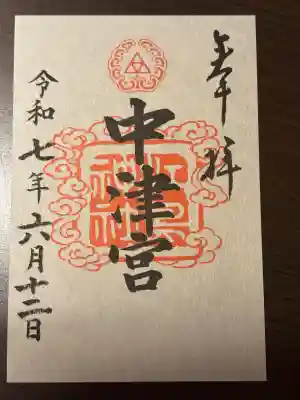 奉拝
中津宮
令和七年六月十二日